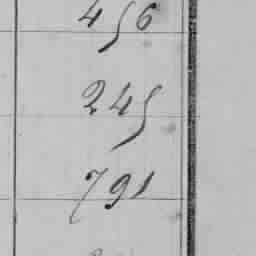 456
245
791